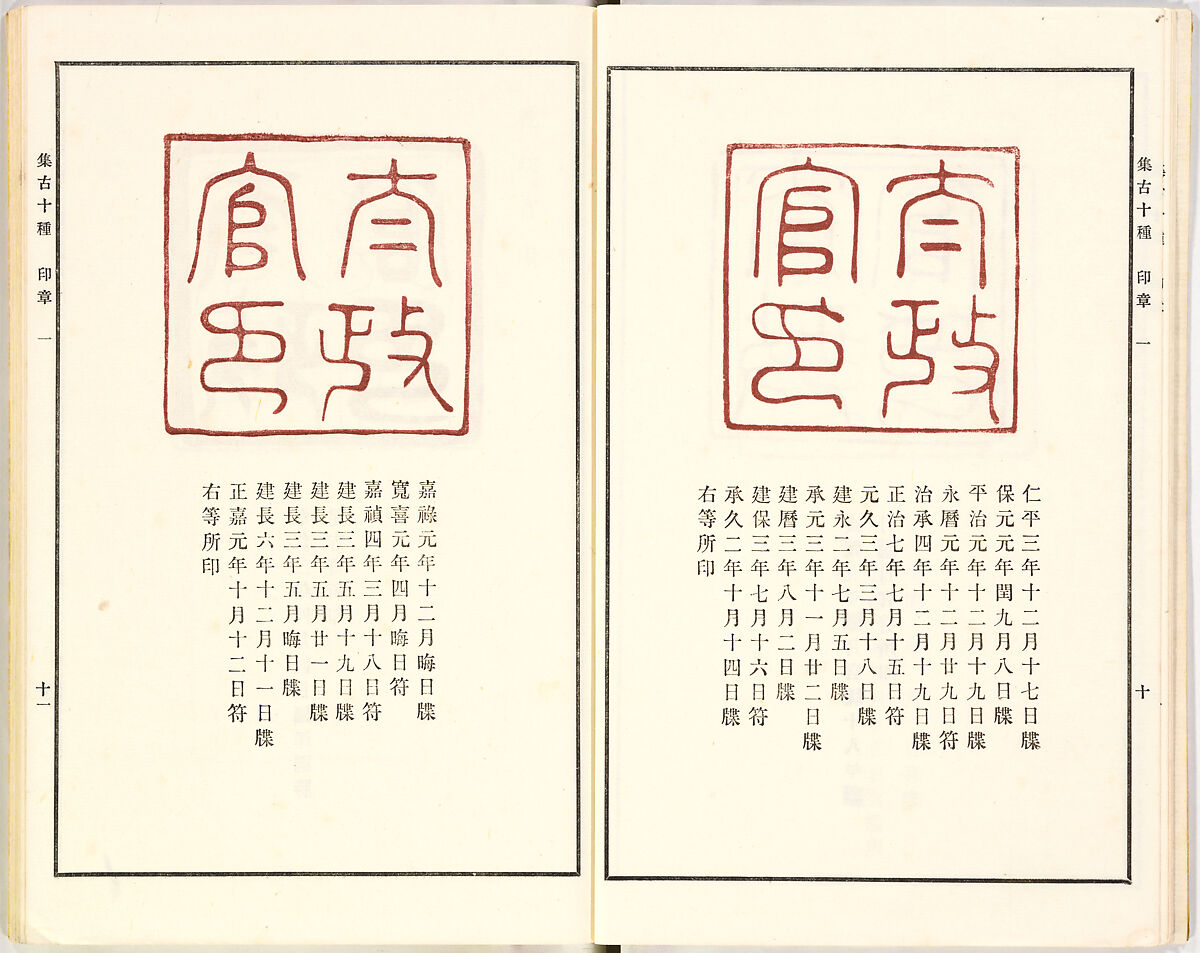 集古十種 印章 一
十
太政
官印
仁平三年十二月十七日牒
保元元年閏九月八日牒
平治元年十二月十九日牒
永曆元年十二月廿九日符
治承四年十二月十九日牒
正治七年七月十五日符
元久三年三月十八日牒
建永二年七月五日牒
承元三年十一月廿二日牒
建曆三年八月二日牒
建保三年七月十六日符
承久二年十月十四日牒
右等所印
太政
官印
嘉祿元年十二月晦日牒
寬喜元年四月晦日符
嘉禎四年三月十八日符
建長三年五月十九日牒
建長三年五月廿一日牒
建長三年五月晦日牒
建長六年十二月十一日牒
正嘉元年十月十二日符
右等所印
集古十種 印章 一
十一